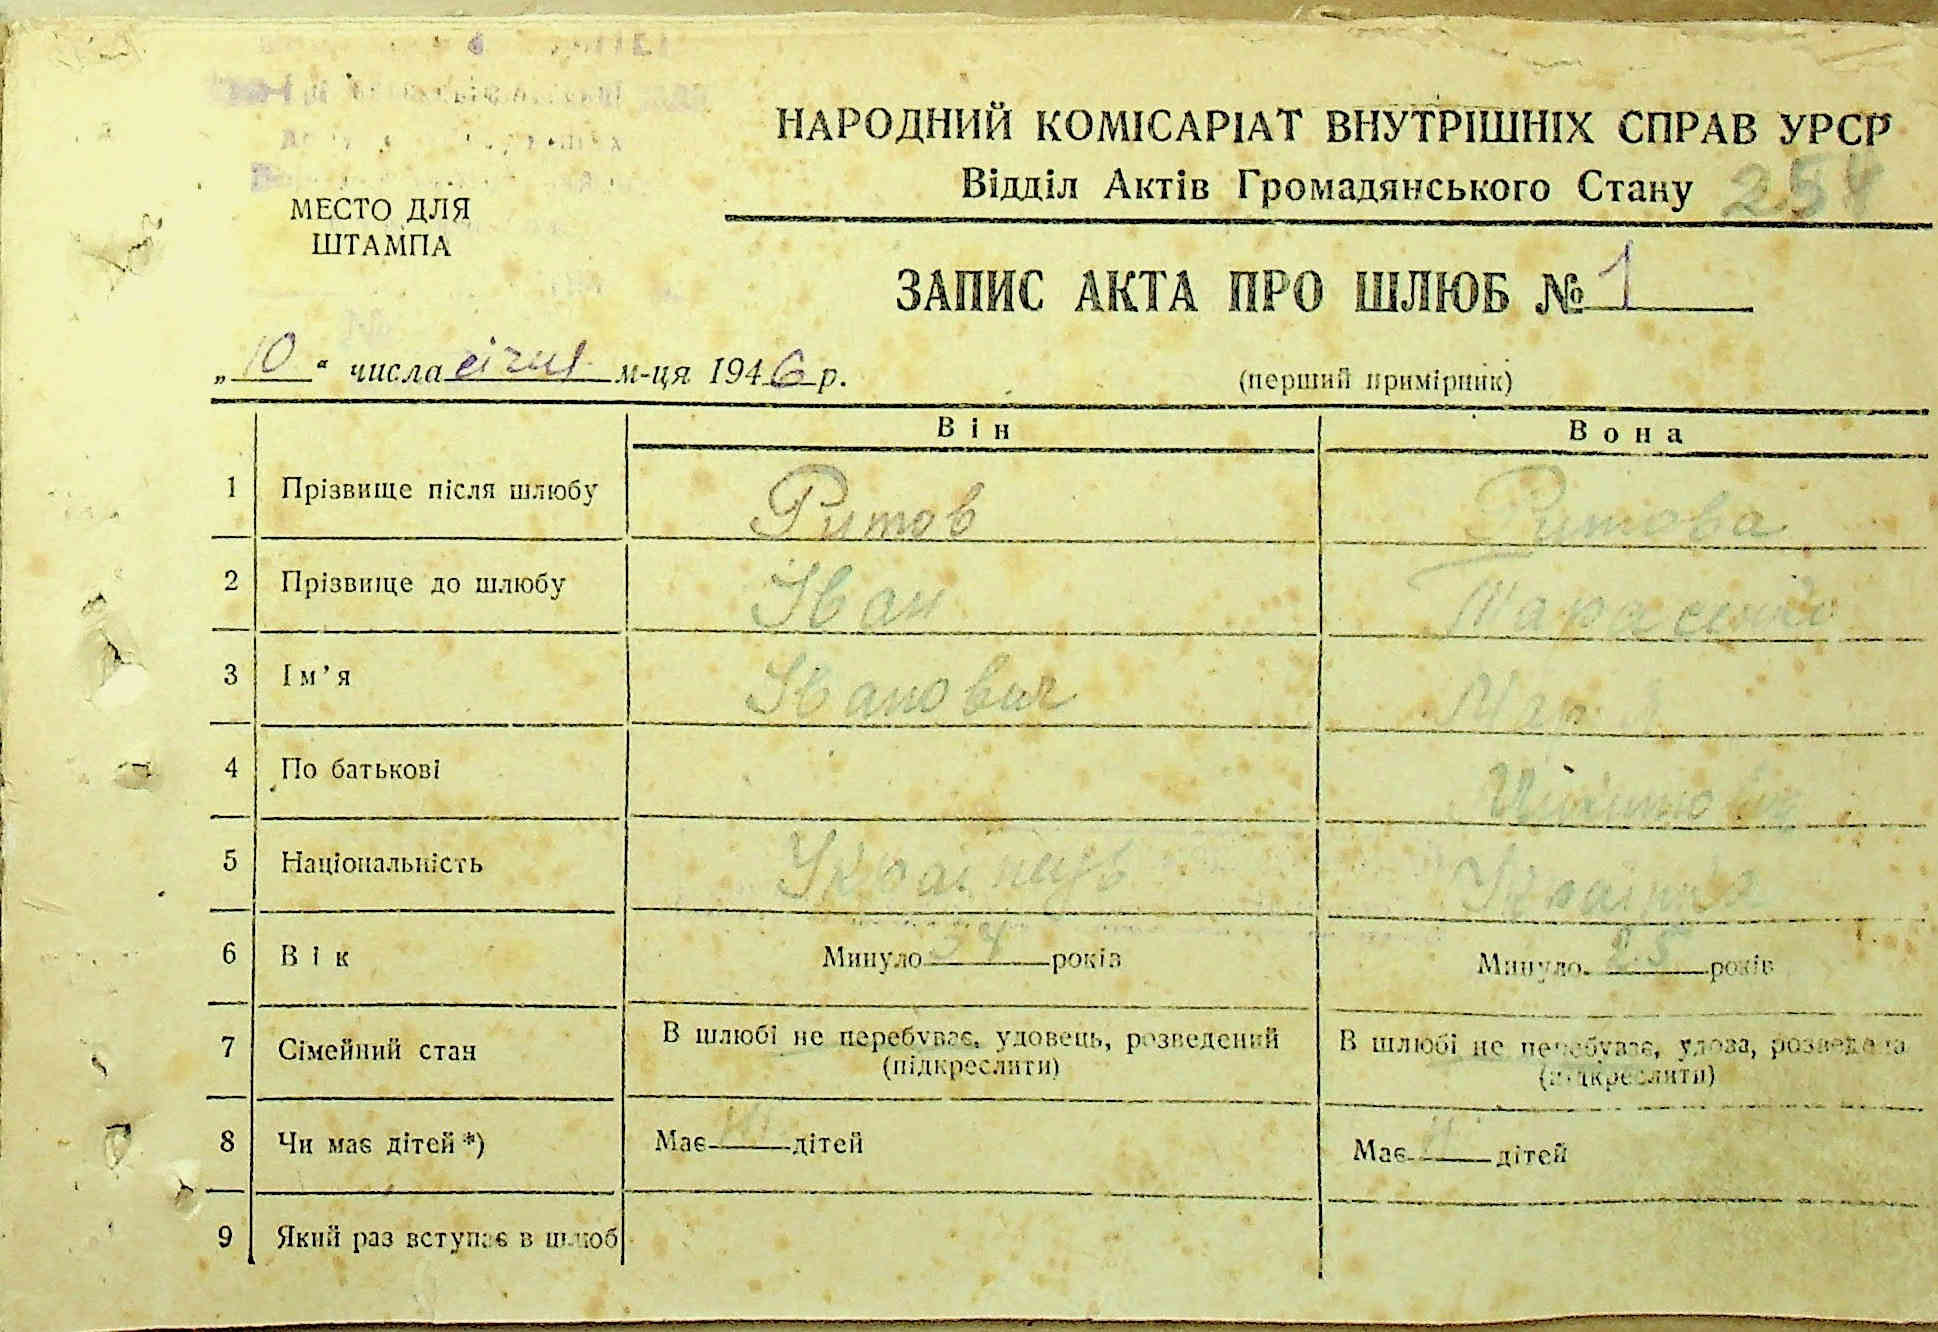 НАРОДНИЙ КОМІСАРІАТ ВНУТРІШНІХ СПРАВ УРСР
Відділ Актів Громадянського Стану 254
МЕСТО ДЛЯ
ШТАМПА
ЗАПИС АКТА ПРО ШЛЮБ № 1
„10“ числа січня м-ця 1946 р.
(перший примірник)
Він Вона
1 Прізвище після шлюбу Ритов Ритова
2 Прізвище до шлюбу Іван Тарасенко
3 Ім'я Іванович Марія
4 По батькові
5 Національність Українець Українка
6 Вік Минуло 34 років Минуло 25 років
7 Сімейний стан В шлюбі не перебуває, удовець, розведений В шлюбі не перебуває, удова, розведена
(підкреслити) (підкреслити)
8 Чи має дітей *) Має дітей Має дітей
9 Який раз вступає в шлюб